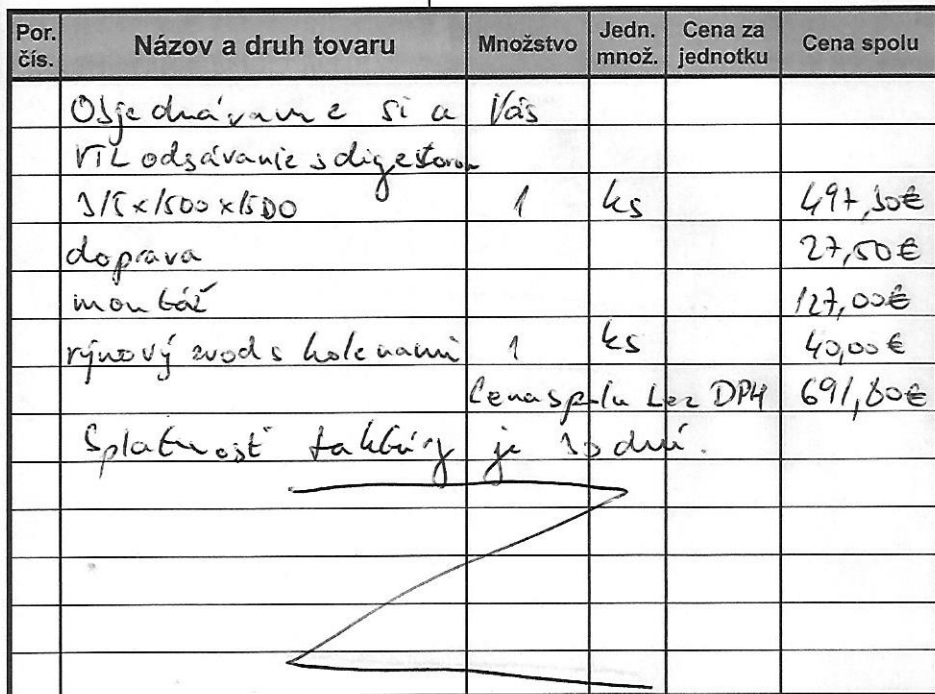 Por. čís. Názov a druh tovaru Množstvo Jedn. množ. Cena za jednotku Cena spolu
Objednávame si u Vás
VZT odsávanie s digestorom
315x1500x1500 1 ks 497,30€
doprava 27,50€
montáž 127,00€
rýnový zvod s kolenami 1 ks 40,00€
Cena spolu bez DPH 691,80€
Splatnosť faktúry je 30 dní.